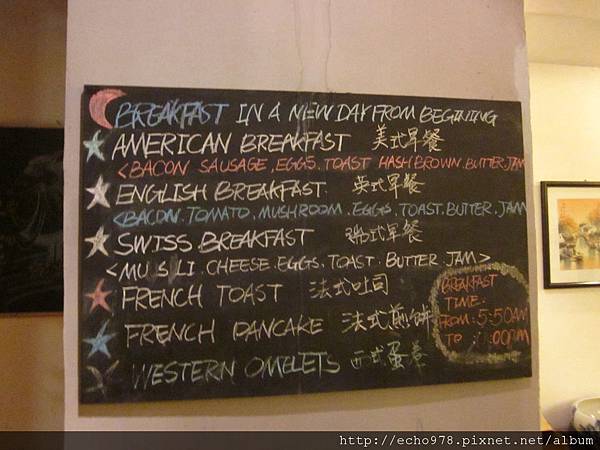 BREAKFAST IN A NEW DAY FROM BEGINING
AMERICAN BREAKFAST 美式早餐
<BACON SAUSAGE.EGGS.TOAST HASH BROWN.BUTTER JAM
ENGLISH BREAKFAST. 英式早餐
<BACON.TOMATO.MUSHROOM.EGGS.TOAST.BUTTER.JAM
SWISS BREAKFAST 瑞式早餐
<MUSILI.CHEESE.EGGS.TOAST.BUTTER JAM>
FRENCH TOAST 法式吐司
FRENCH PANCAKE 法式煎餅
WESTERN OMELETS 西式蛋卷
BREAKFAST
TIME:
FROM:5:50AM
TO :00PM
http://echo978.pixnet.net/album